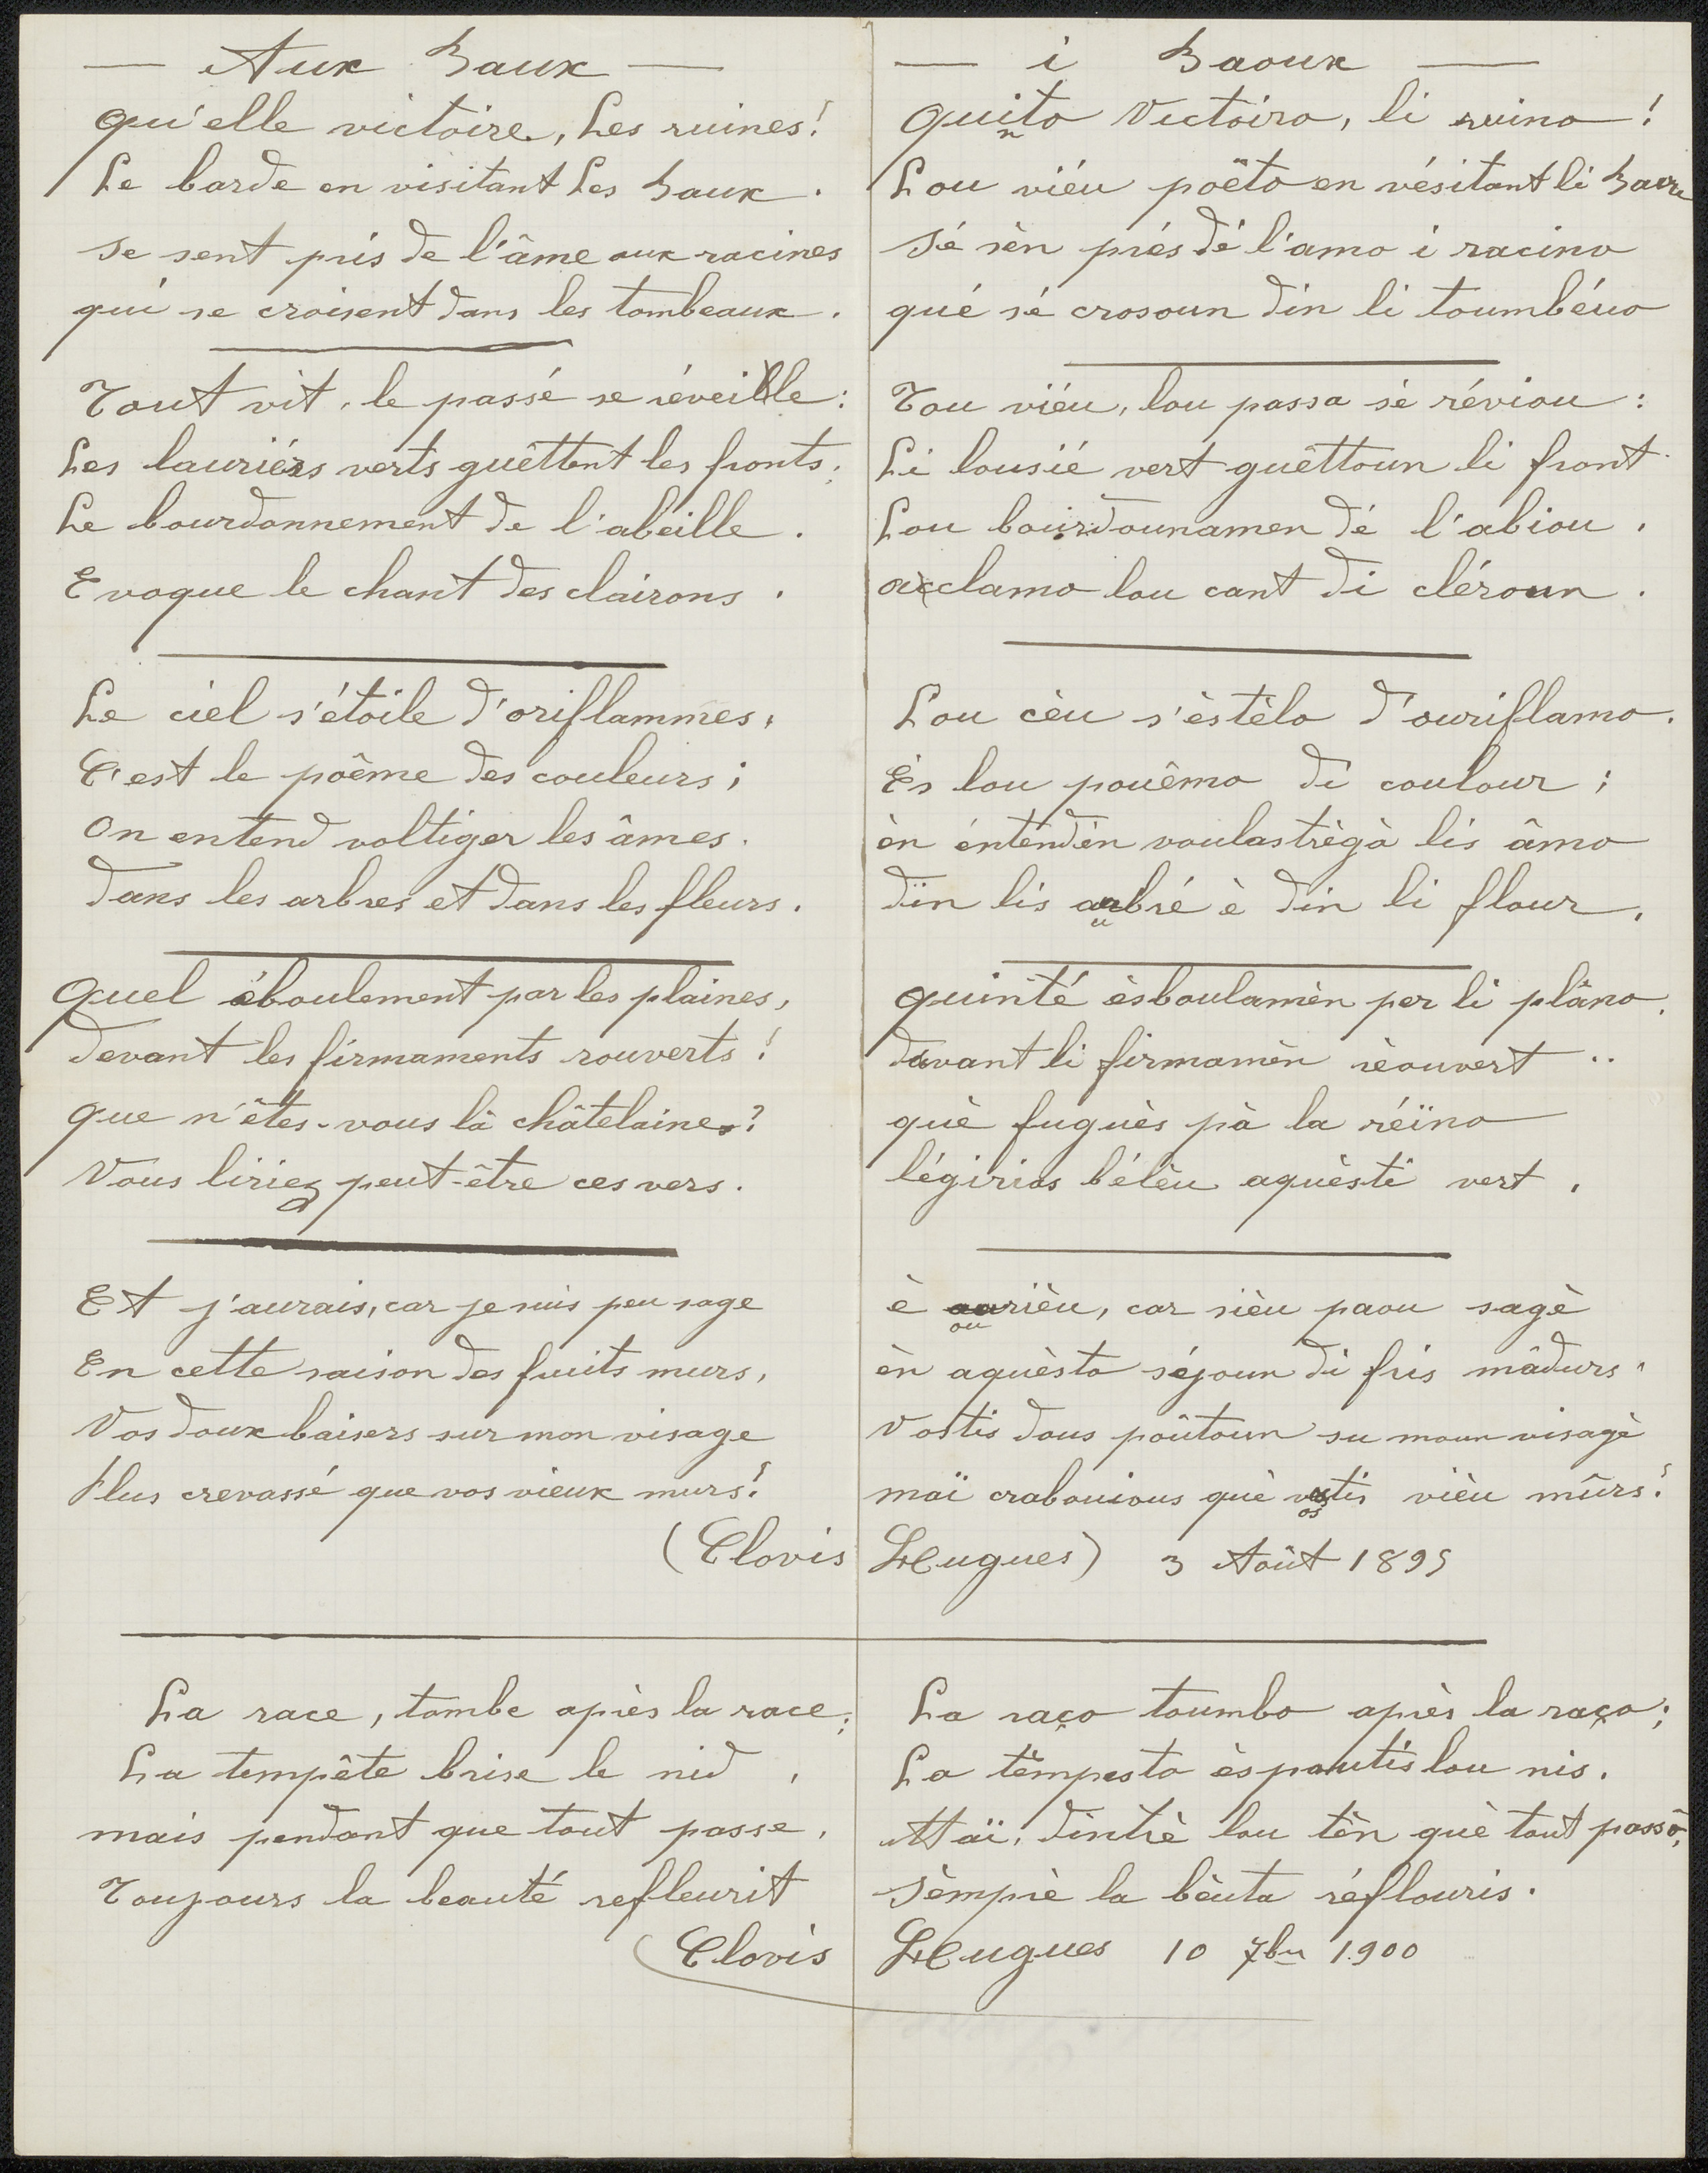 — Aux Baux —
Qu'elle victoire, Les ruines!
Le barde en visitant Les Baux.
Se sent pris de l'âme aux racines
qui se croisent dans les tombeaux.
Tout vit, le passé se réveille:
Les lauriérs verts guêttent les fronts;
Le bourdonnement de l'abeille.
Evoque le chant des clairons.
Le ciel s'étoile d'oriflammes,
C'est le poême des couleurs;
On entend voltiger les âmes.
Dans les arbres et dans les fleurs.
Quel éboulement par les plaines,
Devant les firmaments rouverts!
Que n'êtes-vous là châtelaines?
Vous liriez peut-être ces vers.
Et j'aurais, car je suis peu sage
En cette saison des fruits murs,
Vos doux baisers sur mon visage
Plus crevassé que vos vieux murs!
— i Baoux —
Quito Victoiro, li ruino!
n
Lou viéu poëto en vésitant li Baou
Sé sèn prés dé l'amo i racino
qué sé crosoun din li toumbéuo
Tou viéu, lou passa sé réviou:
Li lousié vert guêttoun li front.
Lou bourdounamen dé l'abiou.
acclamo lou cant di cléroun.
Lou cèu s'èstèlo d'ouriflamo.
Ès lou pouêmo di coulour;
èn éntendèn voulastrègà lis âmo
dïn lis aubré è din li flour.
u
Quinté èsboulamèn per li plâno.
davant li firmamèn rèouvert ..
què fuguès pà la réïno
légirias bélèu aquèsti vert.
è aurièu, car sièu paou sagè
ou
èn aquèsto séjoun di fris mâdurs.
Vostis dous poûtoun su moun visagè
maï crabouious què vostis vièu mûrs!
os
(Clovis Hugues) 3 Août 1895
La race, tombe après la race;
La tempête brise le nid,
mais pendant que tout passe,
Toujours la beauté refleurit
La raço toumbo après la raço;
La tèmpesto èspoutis lou nis.
Maï, dintrè lou tèn què tout passô,
Sèmprè la bèuta réflouris.
Clovis Hugues 10 7bre 1900